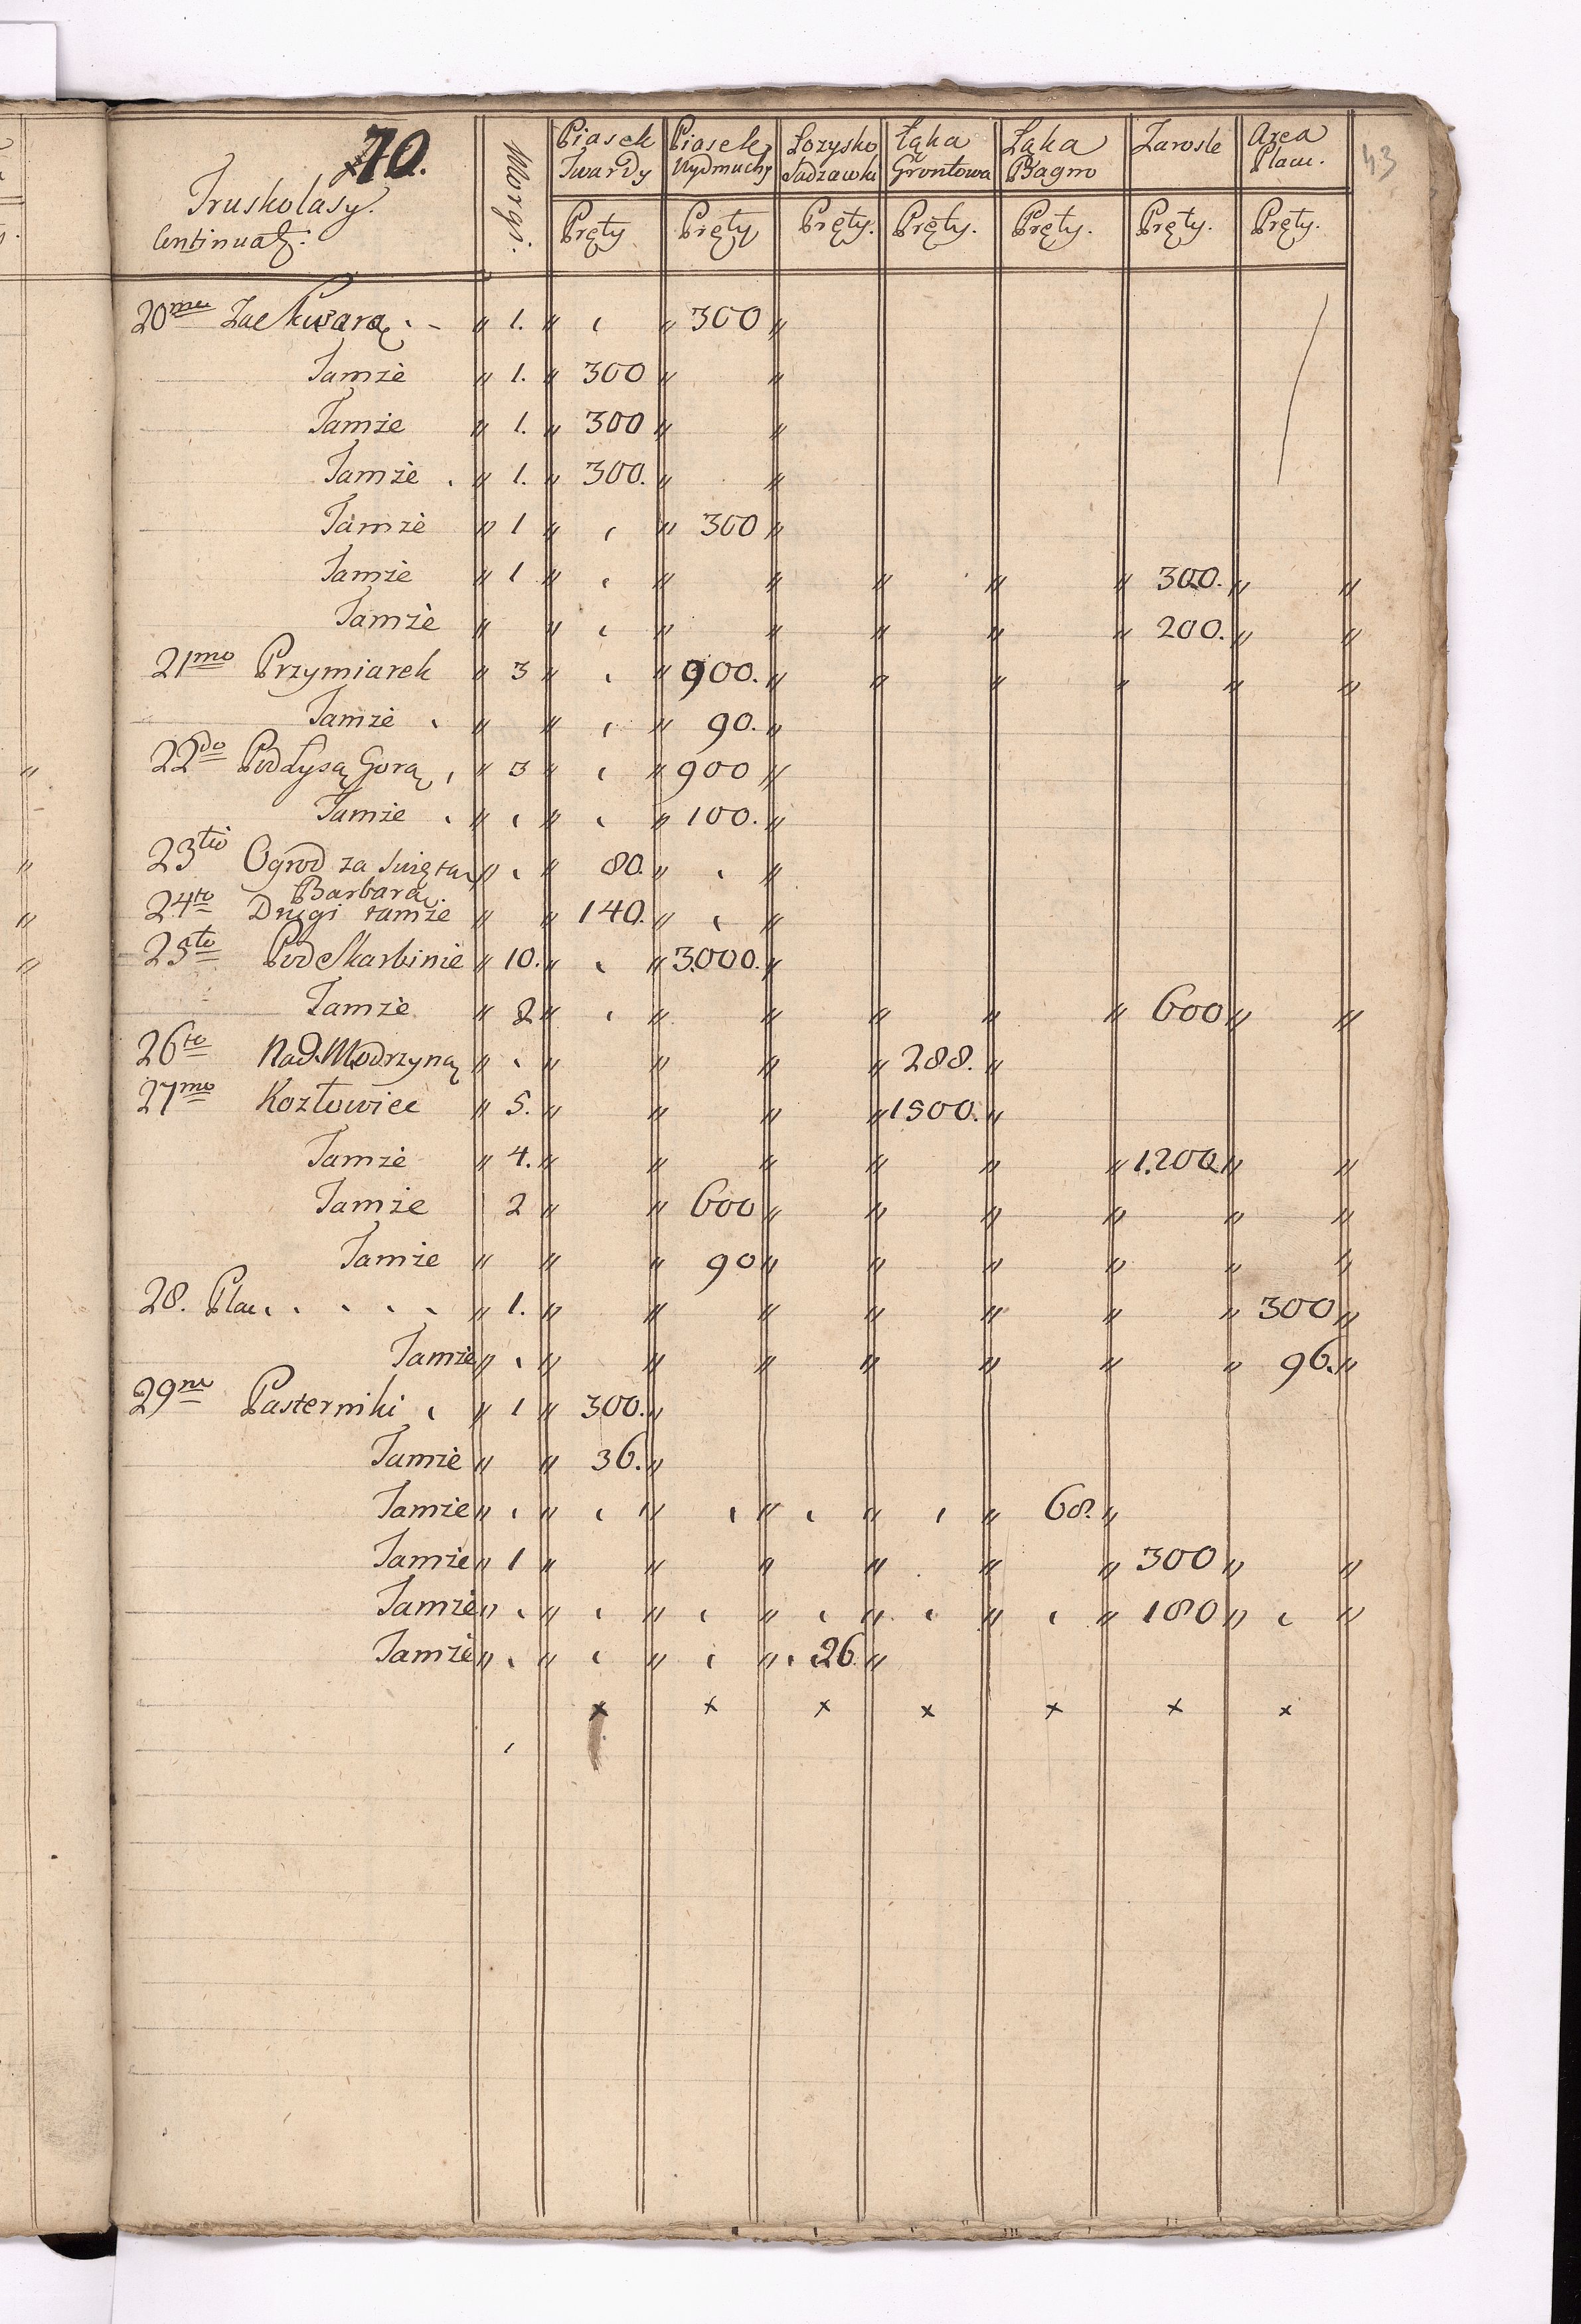 70.
43
Truskolasy.
Continuat:
Morgi.
Piasek Twardy
Piasek Wydmuchy
Łozysko Sadzawki
Łąka Grontowa
Łąka Bagno
Zarosle
Area Placu.
Pręty
Pręty
Pręty.
Pręty.
Pręty.
Pręty.
Pręty.
20mu Za Skwarą " 1. " 300 "
Tamże " 1. " 300 " "
Tamże " 1. " 300 " "
Tamże " 1. " 300. " "
Tamże " 1 " " 300 "
Tamże " 1 " " " " " 300. " "
Tamże " " " " " " 200. " "
21mo Przymiarek " 3 " " 900. " " " " " "
Tamże " " " 90. "
22do Pod Łysą Gorą " 3 " " 900 "
Tamże " " " 100. "
23tio Ogrod za Swiętą Barbarą " " 80. " "
24to Drugi tamże " " 140. " "
25to Pod Skarbinie " 10. " " 3000. "
Tamże " 2 " " " " " 600 " "
26to Nad Modrzyną " " " " " 288. "
27mo Kozłowiec " 5. " " " " 1500. "
Tamże " 4. " " " " " " 1.200. " "
Tamże 2 " " 600 " " " " " "
Tamże " " " 90 " " " " " "
28. Plac " 1. " " " " " " " 300 "
Tamże " " " " " " " " 96. "
29no Pasterniki " 1 " 300. "
Tamże " " 36. "
Tamże " " " " " " 68. "
Tamże " 1 " " " " " 300 " "
Tamże " " " " " " " 180 " "
Tamże " " " " 26 "
x x x x x x x